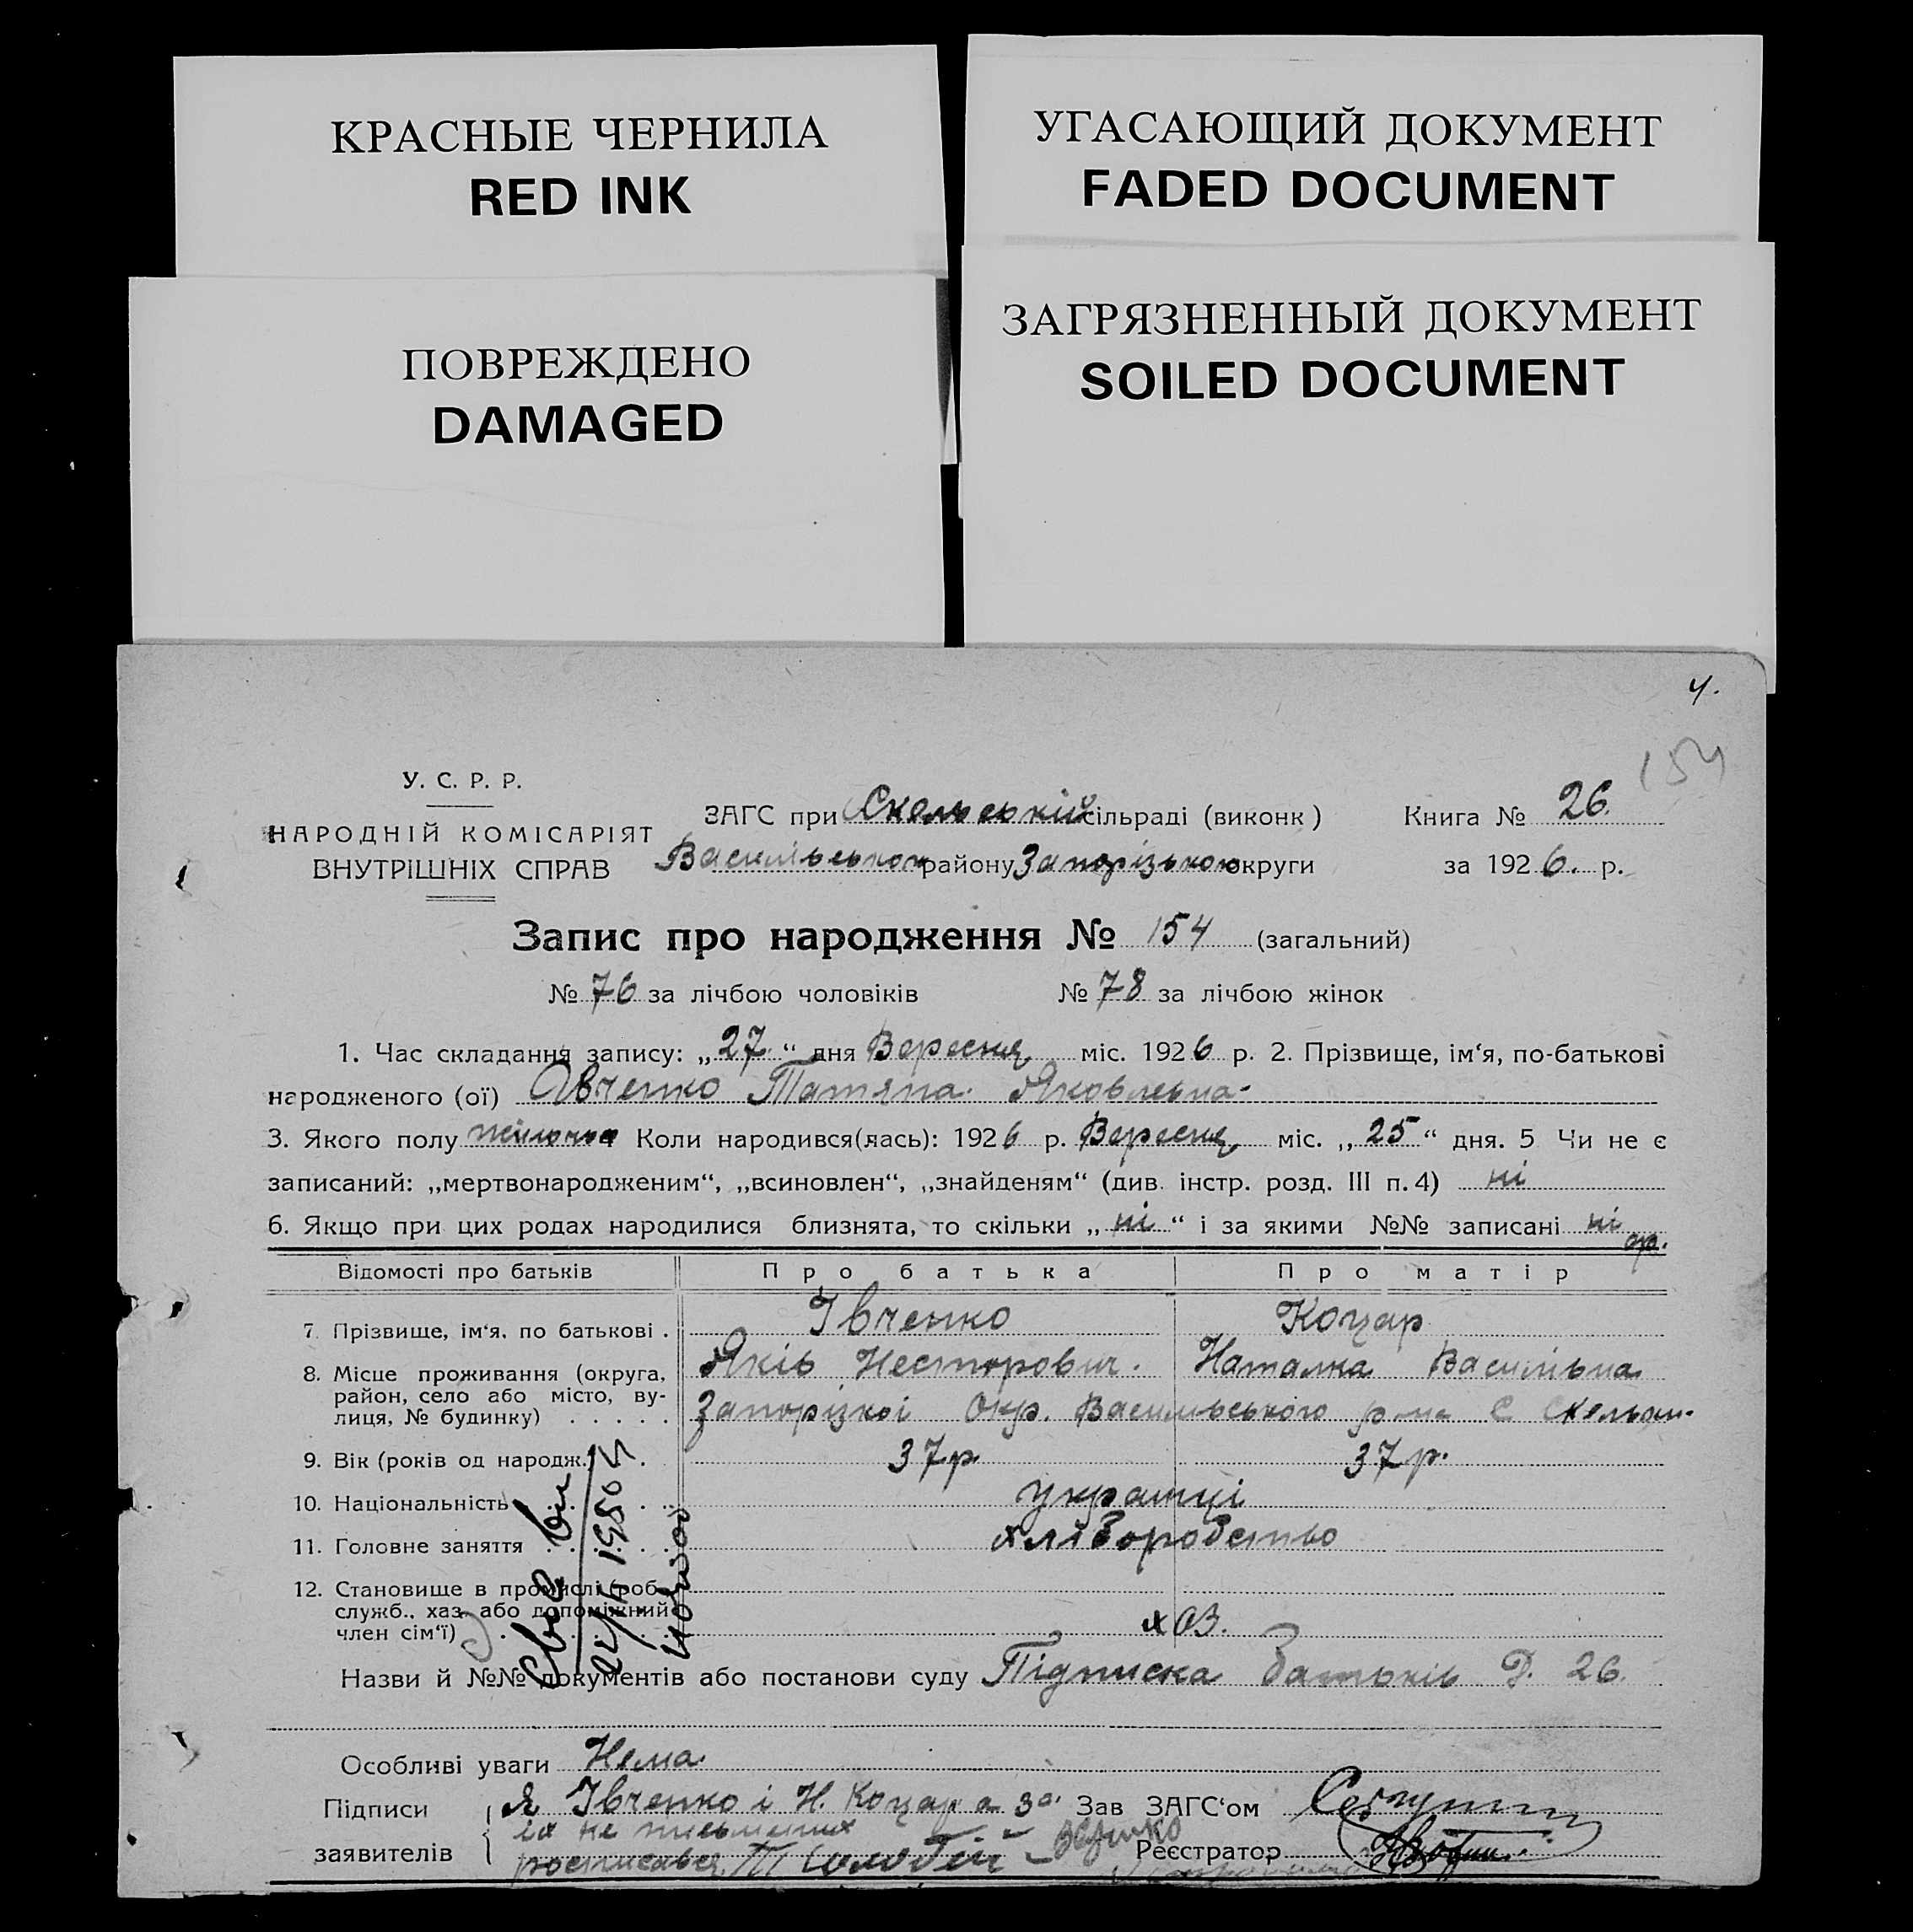 КРАСНЫЕ ЧЕРНИЛА
RED INK
УГАСАЮЩИЙ ДОКУМЕНТ
FADED DOCUMENT
ПОВРЕЖДЕНО
DAMAGED
ЗАГРЯЗНЕННЫЙ ДОКУМЕНТ
SOILED DOCUMENT
4.
154
У. С. Р. Р.
НАРОДНІЙ КОМІСАРІЯТ
ВНУТРІШНІХ СПРАВ
ЗАГС при Скельській сільраді (виконк) Книга № 26.
Васильського району Запорізькою округи за 1926. р.
Запис про народження № 154 (загальний)
№ 76 за лічбою чоловіків № 78 за лічбою жінок
1. Час складання запису: „27“ дня Вересня міс. 1926 р. 2. Прізвище, ім‘я, по-батькові
народженого (ої) Івченко Татяна Яковлевна
3. Якого полу жіночого Коли народився(лась): 1926 р. Вересня міс. „25“ дня. 5 Чи не є
записаний: „мертвонародженим“, „всиновлен“, „знайденям“ (див. інстр. розд. III п. 4) ні
6. Якщо при цих родах народилися близнята, то скільки „ні“ і за якими №№ записані ні
Відомості про батьків Про батька Про матір
7. Прізвище, ім‘я, по батькові . Івченко Коцар
Яків Несторович. Наталка Васильвна
8. Місце проживання (округа, район, село або місто, ву-
лиця, № будинку) . . . . . Запорізкої Окр. Васильського р-на С Скельки
9. Вік (років од народж.) 37 р. 37 р.
10. Національність українці
11. Головне заняття хліборобство
12. Становище в промислі (роб.
служб., хаз. або допоміжний
член сім‘ї) хоз.
Назви й №№ документів або постанови суду Підписка батьків Д. 26.
Особливі уваги Нема
Підписи Я Івченко і Н. Коцар а за Зав ЗАГС‘ом
їх не письменних
заявителів росписався Реєстратор